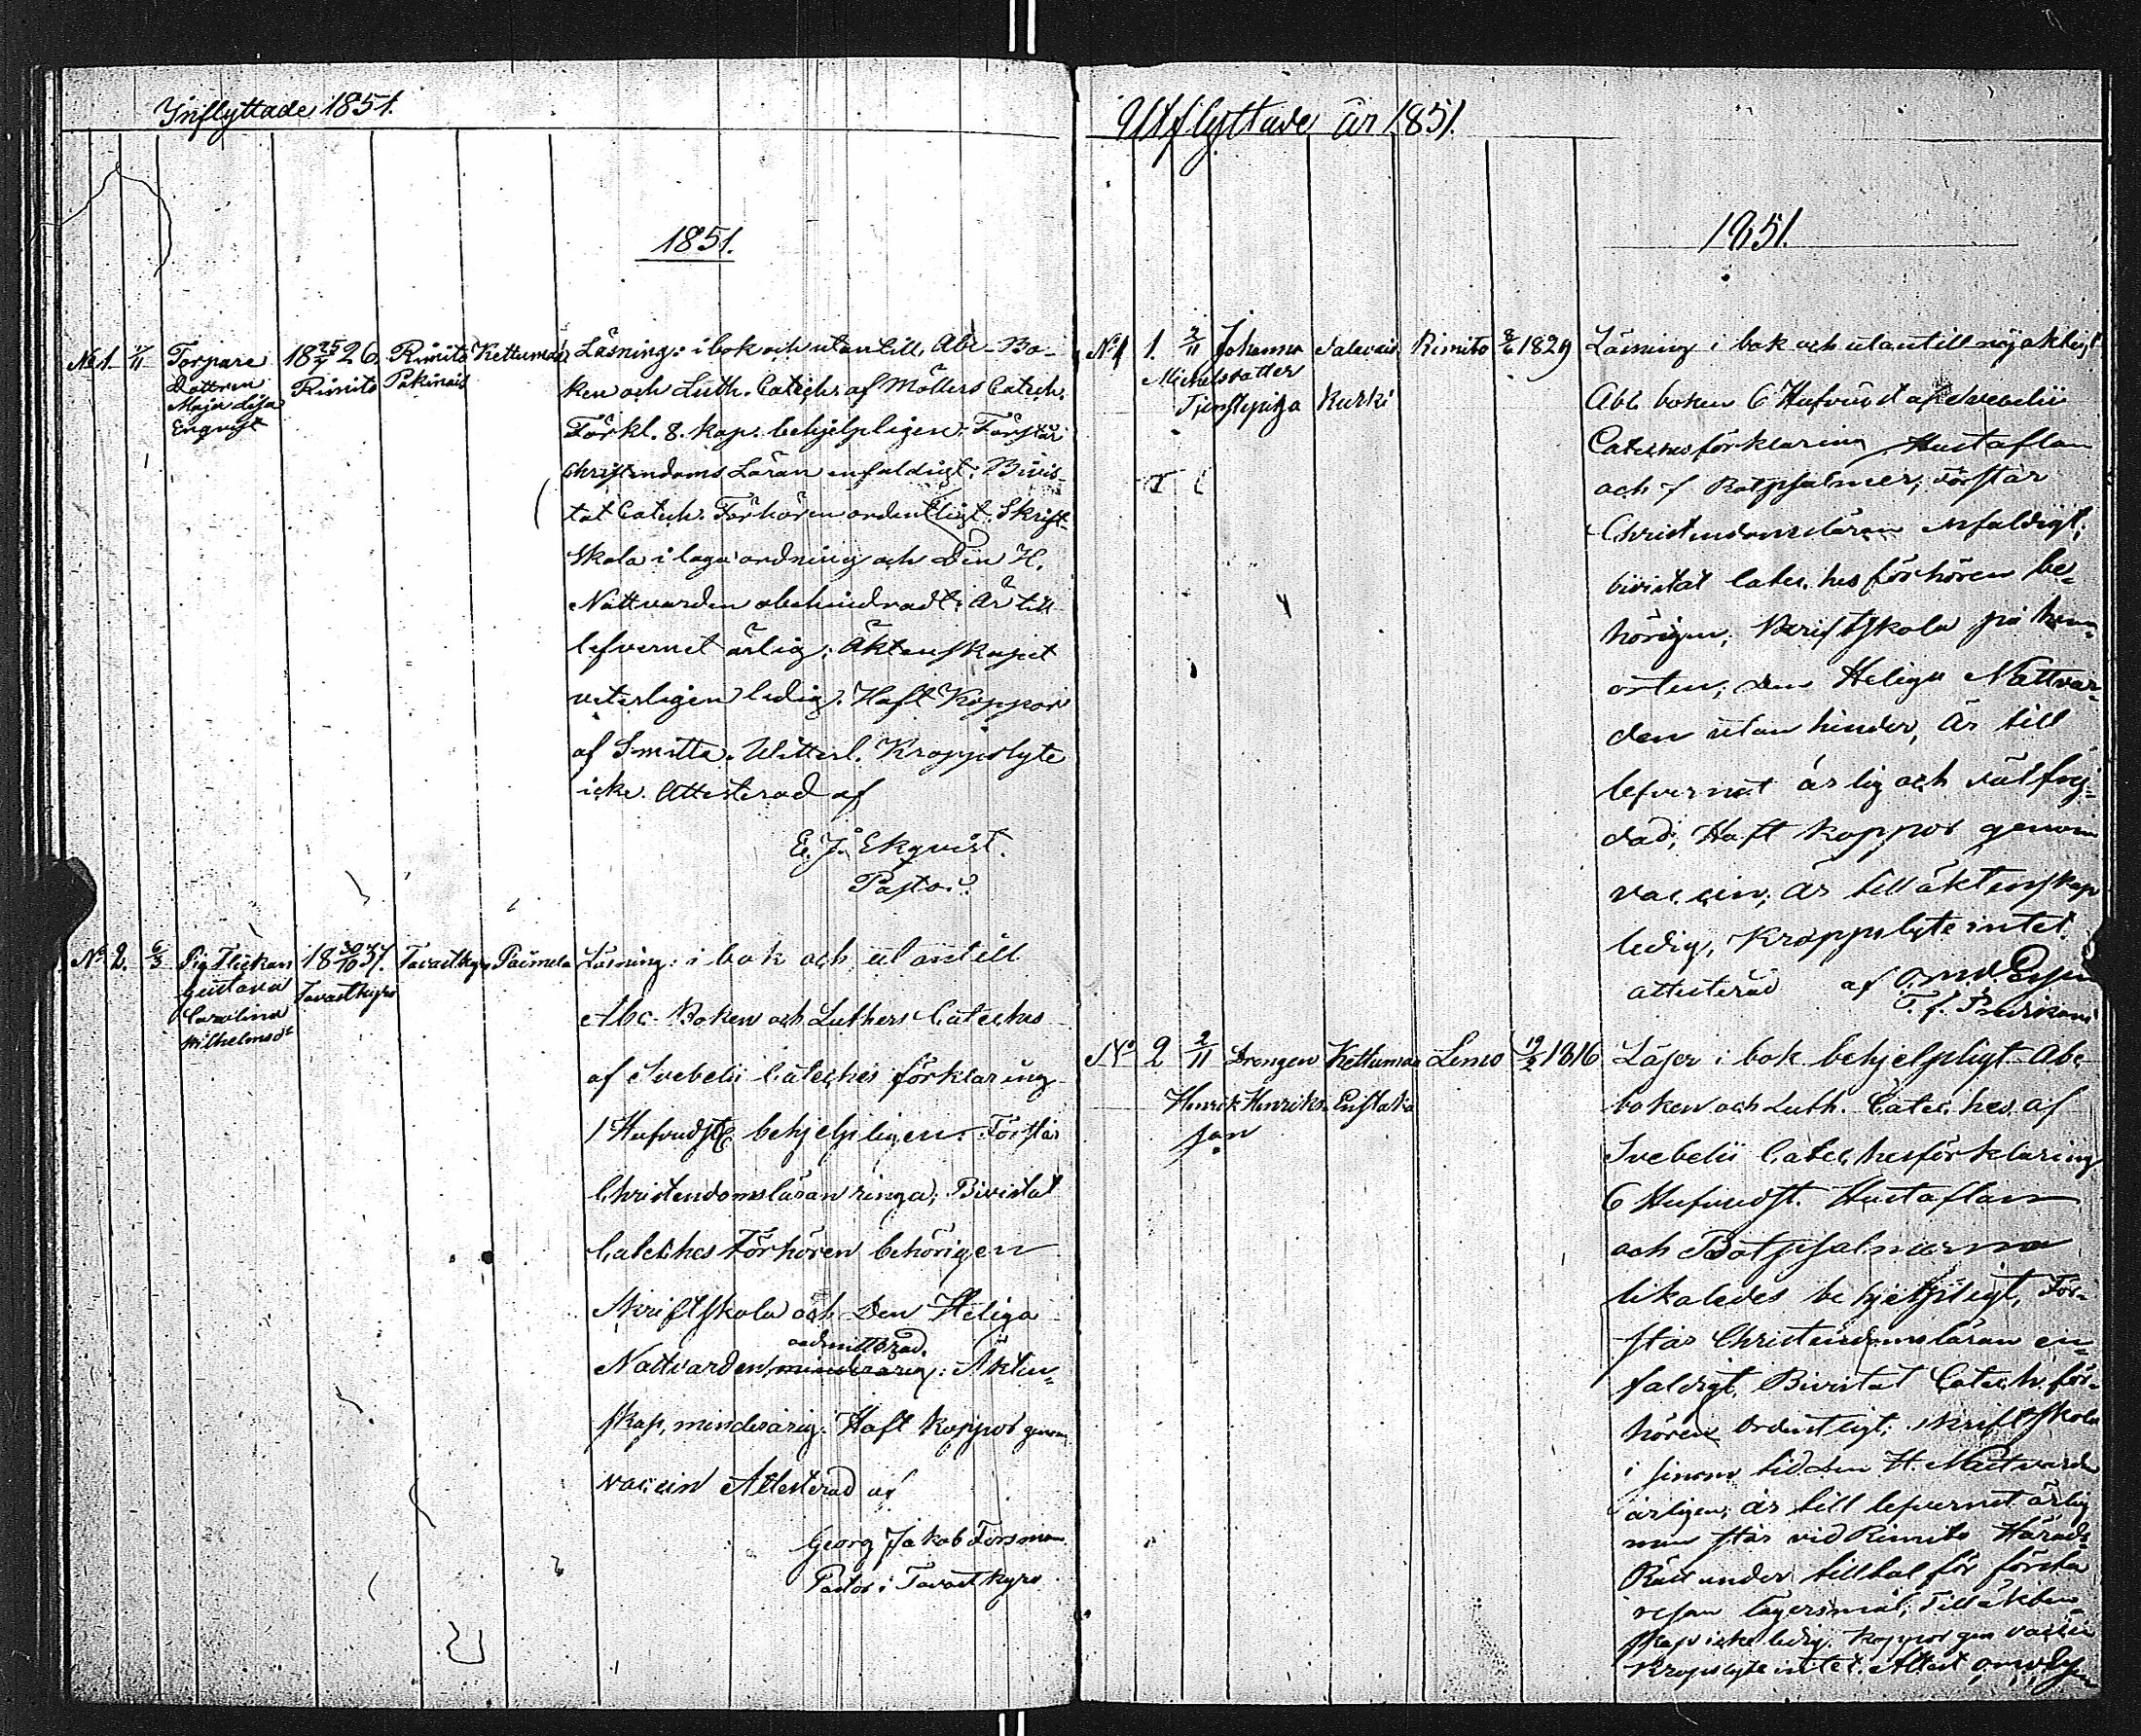 Inflyttade 1851.
1851.
No 1. Torpare 18 25/7 26. Rimito Kettumaa Läsning: i bok och utantill, Abc-Bo-
Dottren Rimito Pakinais ken och Luth. Catech. af Möllers Catech.
Maja Lisa
Engqvist Förkl. 8. kap. behjelpligen; Förstår
Christendoms Läran enfaldigt; Bivis-
tat Catech. Förhören ordentligt. Skrift-
skola i laga ordning och Den H.
Nattvarden obehindradt; Är till
lefvernet ärlig; Äktenskapet
veterligen ledig. Haft Koppor
af Smitta. Witterl. Kroppslyte
icke. Attesterad af
E. J. Ekqvist.
Pastor.
No 2. 6/3 Pig Flickan 18 30/10 37. Tavastkyro Paimela Läsning: i bok och utantill
Gustava Tavastkyro
Carolina Abc-Boken och Luthers Cateches
Wilhelmsdr
af Svebelii Cateches förklaring
1 Hufvudst behjelpligen. Förstår
Christendomsläran ringa; Bivistat
Cateches Förhören behörigen
Skriftskola och Den Heliga
admitterad.
Nattvarden minderårig: Äkten-
skap, minderårig. Haft Koppor genom
vaccin Attesterad af
Georg Jakob Forsman
Pastor i Tavastkyro
Utflyttade år 1851.
1851.
No 1 1. 2/11 Johanna Salavais Rimito 1829 Läsning i bok och utantill nöjaktigt
Michelsdotter
Tjenstepiga Kurki Abc boken 6 Hufvudst af Svebelii
Catechesförklaring Hustaflan
och 7 Botpsalmer; Förstår
Christendomsläran enfaldigt;
bivistat Cateches förhören be-
hörigen; Skriftskola på hem-
orten; den Heliga Nattvar-
den utan hinder, Är till
lefvernet ärlig och välfrej-
dad; Haft koppor genom
vaccin; är till äktenskap
ledig, Kroppslyte intet
attesterad af
No 2 2/11 Drengen Kettumaa Lemo 19/2 1816 Läser i bok behjelpligt Abc
Henrik Henriks- boken och Luth. Cateches af
son
Svebelii Catechesförklaring
6 Hufvudst. Hustaflan
och Botpsalmerna
likaledes behjelpligt, För-
står Christendomsläran en-
faldigt, Bivistat Catech. för-
hören Ordentligt; skriftskola
i sinom tid den H. Nattvarden
årligen; är till lefvernet ärlig
men står vid Rimito Härads
Rätt under tilltal för första
resan lägersmål; Till äkten-
skap icke ledig. Koppor gen vaccin
Kroppslyte intet. Attest